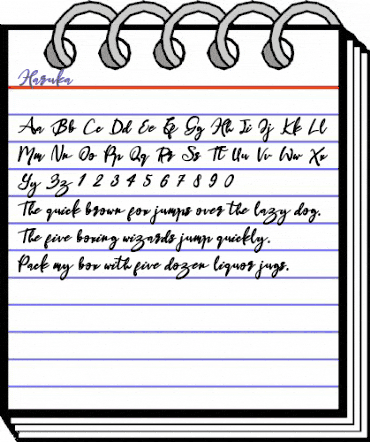 Haruka
Aa Bb Cc Dd Ee Ff Gg Hh Ii Jj Kk Ll
Mm Nn Oo Pp Qq Rr Ss Tt Uu Vv Ww Xx
Yy Zz 1 2 3 4 5 6 7 8 9 0
The quick brown fox jumps over the lazy dog.
The five boxing wizards jump quickly.
Pack my box with five dozen liquor jugs.